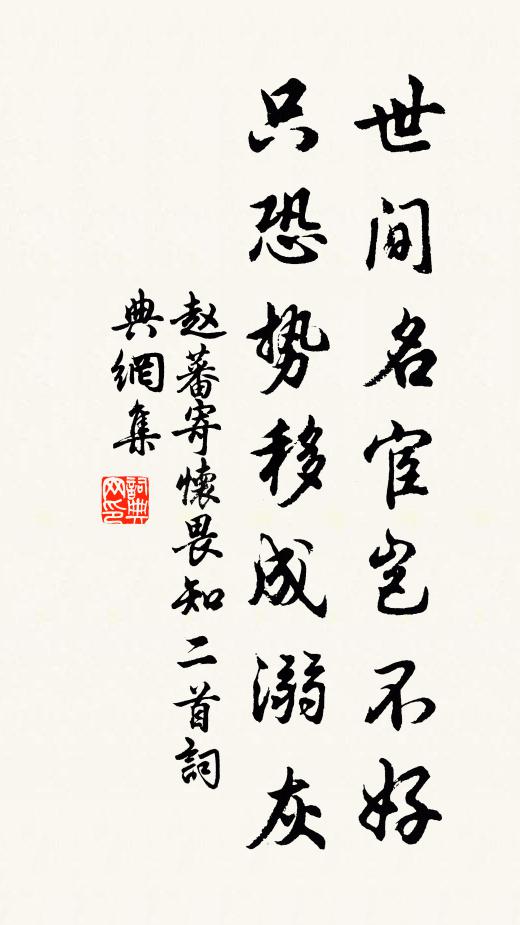 世间名宦岂不好
只恐势移成溺灰
赵蕃寄懷畏知二首詞
典網集
詞典
网印